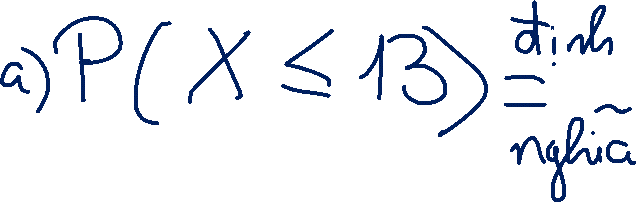 a) P( X ≤ 13) = định nghĩa